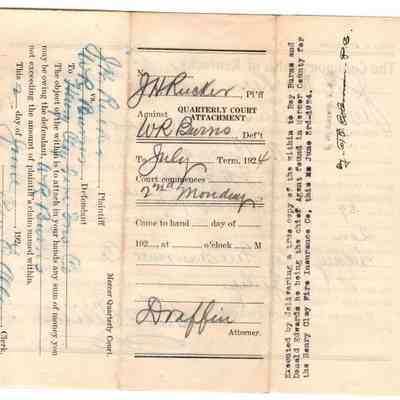 No.
J H Rucker, Pl'ff
Against QUARTERLY COURT
ATTACHMENT
W R Burns Def't
To July Term, 1924
Court commences
2nd Monday
Come to hand day of
192 , at o'clock M
Draffin
Attorney.
Mercer Quarterly Court.
Plaintiff
vs.
W R Burns, Defendant
To
The object of the within is to attach in your hands any sum of money you
may be owing the defendant, W R Burns
not exceeding the amount of plaintiff's claim named within.
This 2 day of June 192
Clerk.
Executed by delivering a true copy of the within to Roy Burns and
Donald Edwards he being the chief Agent found in Mercer County for
the Henry Clay Fire Insurance Co, this June 3rd-1924.